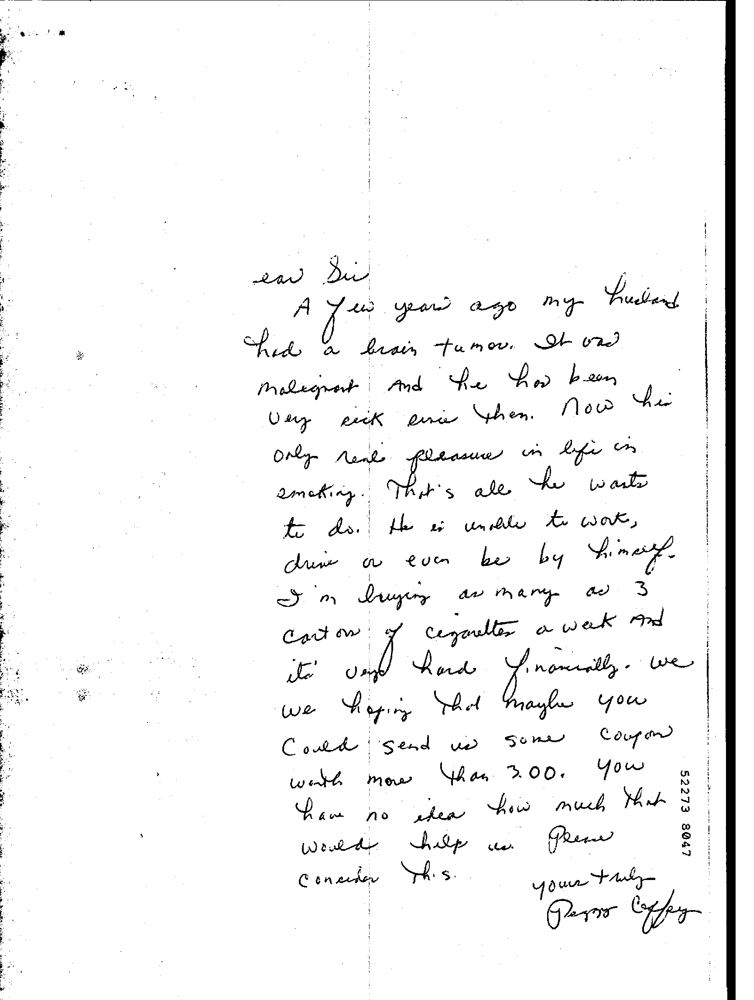 ear Sir
A few years ago my husband
had a brain tumor. It was
malignant And he has been
very sick since then. Now his
only real pleasure in life is
smoking. That's all he wants
to do. He is unable to work,
drive or even be by himself.
I'm buying as many as 3
carton of cigarettes a week And
its' very hard financially. We
we hoping that maybe you
Could send us some coupon
worth more than 3.00. You
have no idea how much that
would help us. Please
consider This.
yours truly
52273 8047